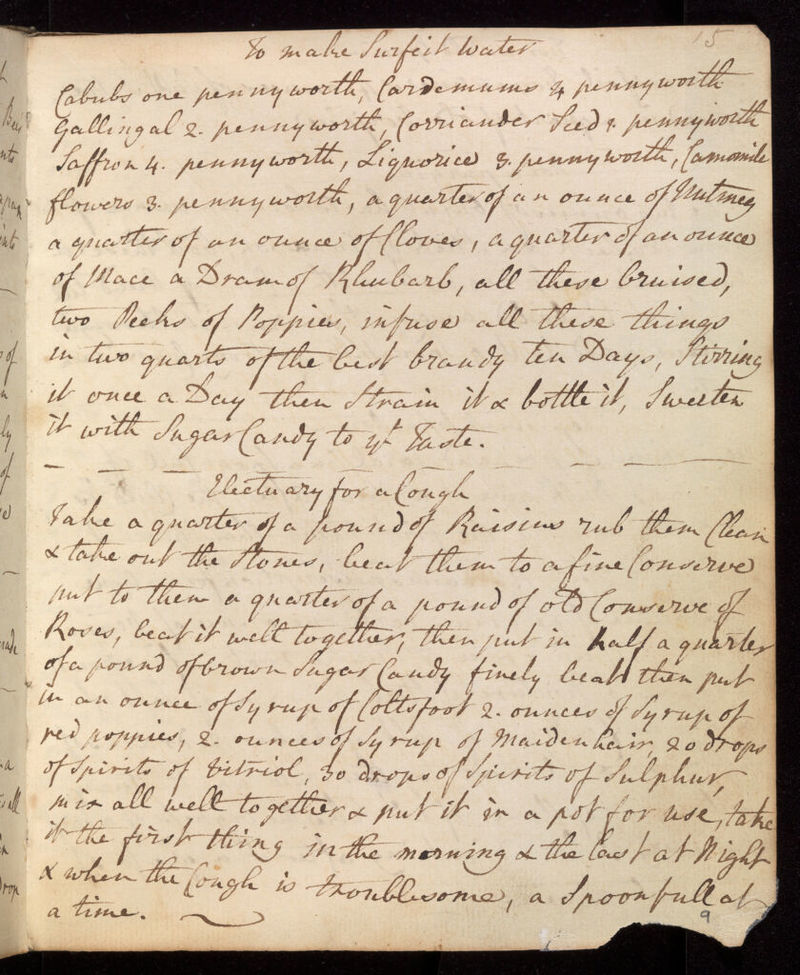 15
To make Surfeit Water
Cabubs one pennyworth, Cardemums 4 pennyworth
Gallingal 2. pennyworth, Corriander Seed 1. pennyworth
Saffron 4. pennyworth, Liquorice 3. pennyworth, Camomile
flowers 3. pennyworth, a quarter of an ounce of Nutmeg
a quarter of an ounce of Cloves, a quarter of an ounce
of Mace a Dram of Rhubarb, all these bruised,
two Pecks of Poppies, infuse all these things
in two quarts of the best brandy ten Days, Stirring
it once a Day then Strain it & bottle it, Sweeten
it with Sugar Candy to yr Taste.
Electuary for a Cough
Take a quarter of a pound of Raisins rub them Clean
& take out the Stones, beat them to a fine Conserve
put to them a quarter of a pound of old Conserve of
Roses, beat it well together, then put in half a quarter
of a pound of brown Sugar Candy finely beat then put
in an ounce of Syrup of Coltsfoot 2. ounces of Syrup of
red poppies, 2. ounces of Syrup of Maidenhair, 20 drops
of Spirits of Vitriol, 30 drops of Spirits of Sulphur,
mix all well together & put it in a pot for use, take
it the first thing in the morning & the last at Night
& when the Cough is troublesome, a Spoonfull at
a time.
9